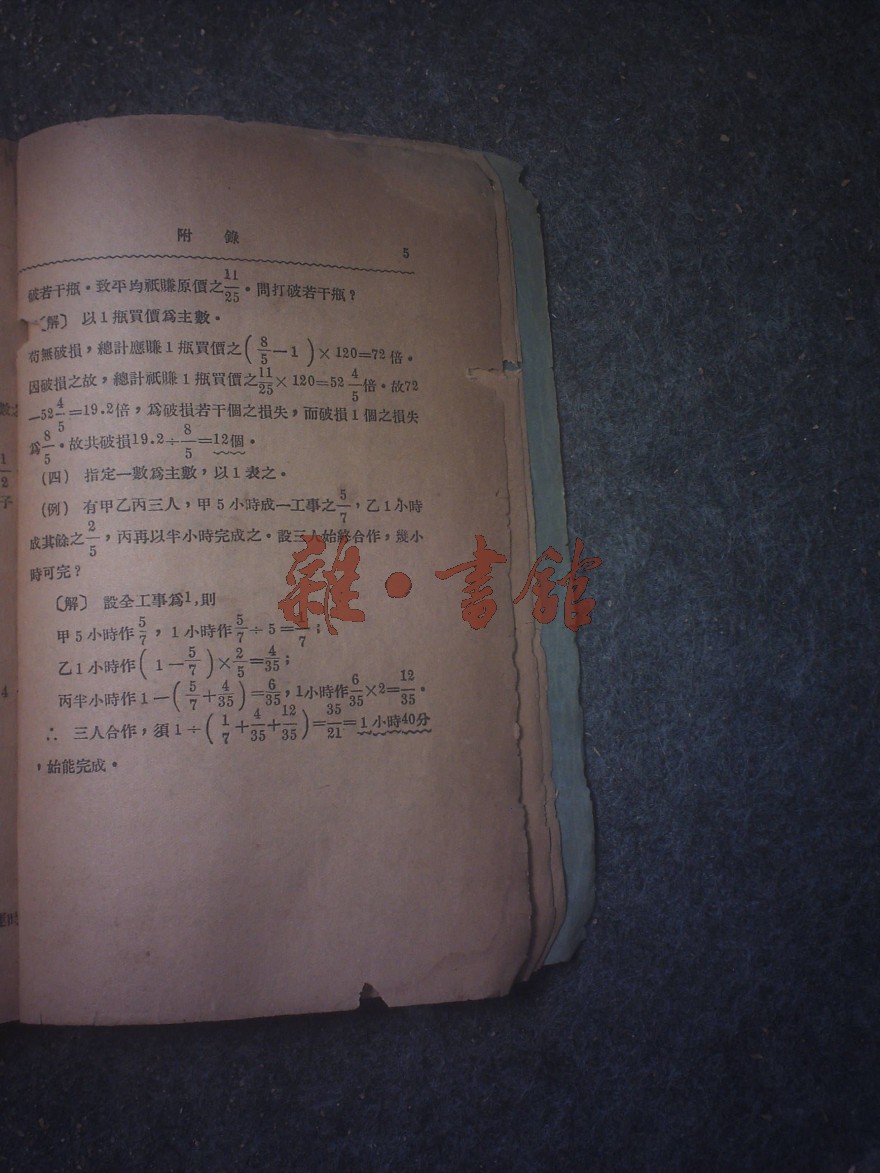 附錄
5
破若干瓶。致平均祇賺原價之11/25。問打破若干瓶?
〔解〕 以1瓶買價爲主數。
苟無破損,總計應賺1瓶買價之(8/5−1)×120=72倍。
因破損之故,總計祇賺1瓶買價之11/25×120=52 4/5倍。故72
−52 4/5=19.2倍,爲破損若干個之損失,而破損1個之損失
爲8/5。故共破損19.2÷8/5=12個。
(四) 指定一數爲主數,以1表之。
(例) 有甲乙丙三人,甲5小時成一工事之5/7,乙1小時
成其餘之2/5,丙再以半小時完成之。設三人始終合作,幾小
時可完?
〔解〕 設全工事爲1,則
甲5小時作5/7,1小時作5/7÷5= /7;
乙1小時作(1−5/7)×2/5=4/35;
丙半小時作1−(5/7+4/35)=6/35,1小時作6/35×2=12/35。
∴ 三人合作,須1÷(1/7+4/35+12/35)=35/21=1小時40分
,始能完成。
雜·書館